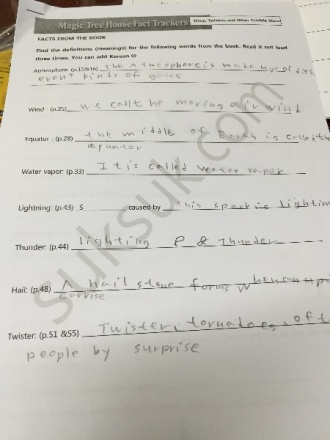 Magic Tree House Fact Trackers
FACTS FROM THE BOOK
Find the definitions (meanings) for the following words from the book. Read it out loud
three times. You can add Korean ☺
Atmosphere (p.15&16) the Atmosphere is made up of
event kinds of gases
Wind (p.25) we call the moving air wind
Equator : (p.28) the middle of Earth is called the
equator
Water vapor: (p.33) It is called water vapor
Lightning: (p.43) _S caused by this spark is lightin
Thunder: (p.44) lighting & Thunder
Hail: (p.48) A hail stone forms when up
Twister: (p.51 &55) Twister, tornadoes oft
people by surprise
suksuk.com